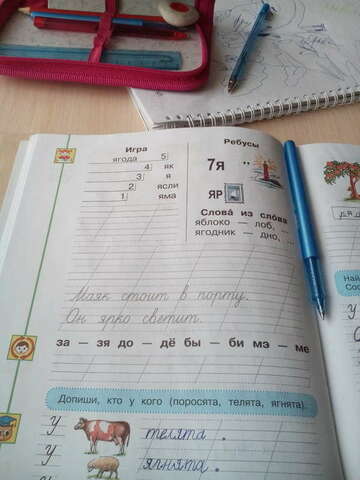 Игра
ягода 5
4 як
3 я
2 ясли
1 яма
Ребусы
7я
ЯР
Слова из слова
яблоко — лоб, —
ягодник — дно, ...
Маяк стоит в порту.
Он ярко светит.
за — зя до — дё бы — би мэ — ме
Допиши, кто у кого (поросята, телята, ягнята).
У телята.
У ягнята.
У
Най
Сос
У